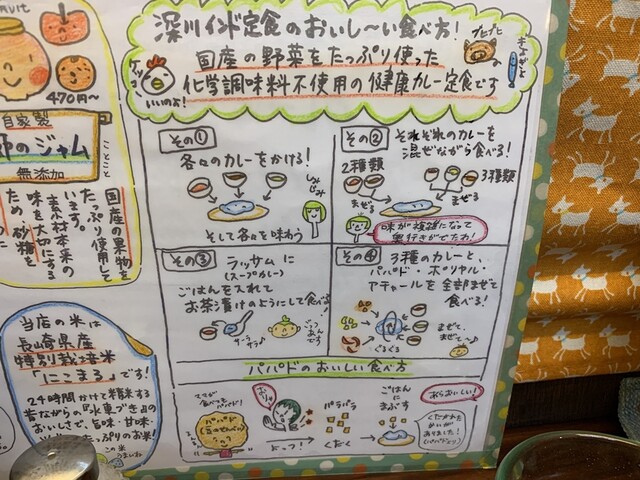 深川インド定食のおいし〜い食べ方!
国産の野菜をたっぷり使った
化学調味料不使用の健康カレー定食です
ケッコー
いいのよ!
ブヒブヒ
その①
各々のカレーをかける!
しみじみ
そして各々を味わう
その②
それぞれのカレーを
混ぜながら食べる!
2種類
3種類
まぜる
まぜる
味が複雑になって
奥行きがでたわ!
その③
ラッサムに
(スープカレー)
ごはんを入れて
お茶漬けのようにして食べる!
サラサラ♪
ごっつぁんです
その④
3種のカレーと
パパド・ポリヤル・
アチャールを全部まぜて
食べる!
ぐるぐる
まぜて、
まぜて〜♪
パパドのおいしい食べ方
パパド
えいっ!
パラパラ
くだく
ごはんに
まぶす
あらおいしい!
470円〜
自家製
のジャム
無添加
ことこと
国産の果物を
たっぷり使用して
います。
素材本来の
味を大切にする
ため、砂糖を
当店の米は
長崎県産
特別栽培米
「にこまる」です!
24時間かけて精米する
昔ながらの『水車づき』の
おいしさで、旨味・甘味・
たっぷりのお米!
この米
うまいね